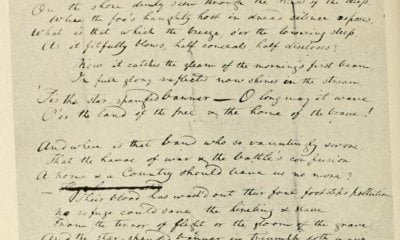 On the shore dimly seen through the mists of the deep,
Where the foe's haughty host in dread silence reposes,
What is that which the breeze, o'er the towering steep,
As it fitfully blows, half conceals, half discloses?
Now it catches the gleam of the morning's first beam,
In full glory reflected now shines in the stream,
'Tis the star-spangled banner — O long may it wave
O'er the land of the free & the home of the brave!
And where is that band who so vauntingly swore,
That the havoc of war & the battle's confusion
A home & a Country should leave us no more?
— Their blood has wash'd out their foul footstep's pollution.
No refuge could save the hireling & slave
From the terror of flight or the gloom of the grave,
And the star-spangled banner in triumph doth wave